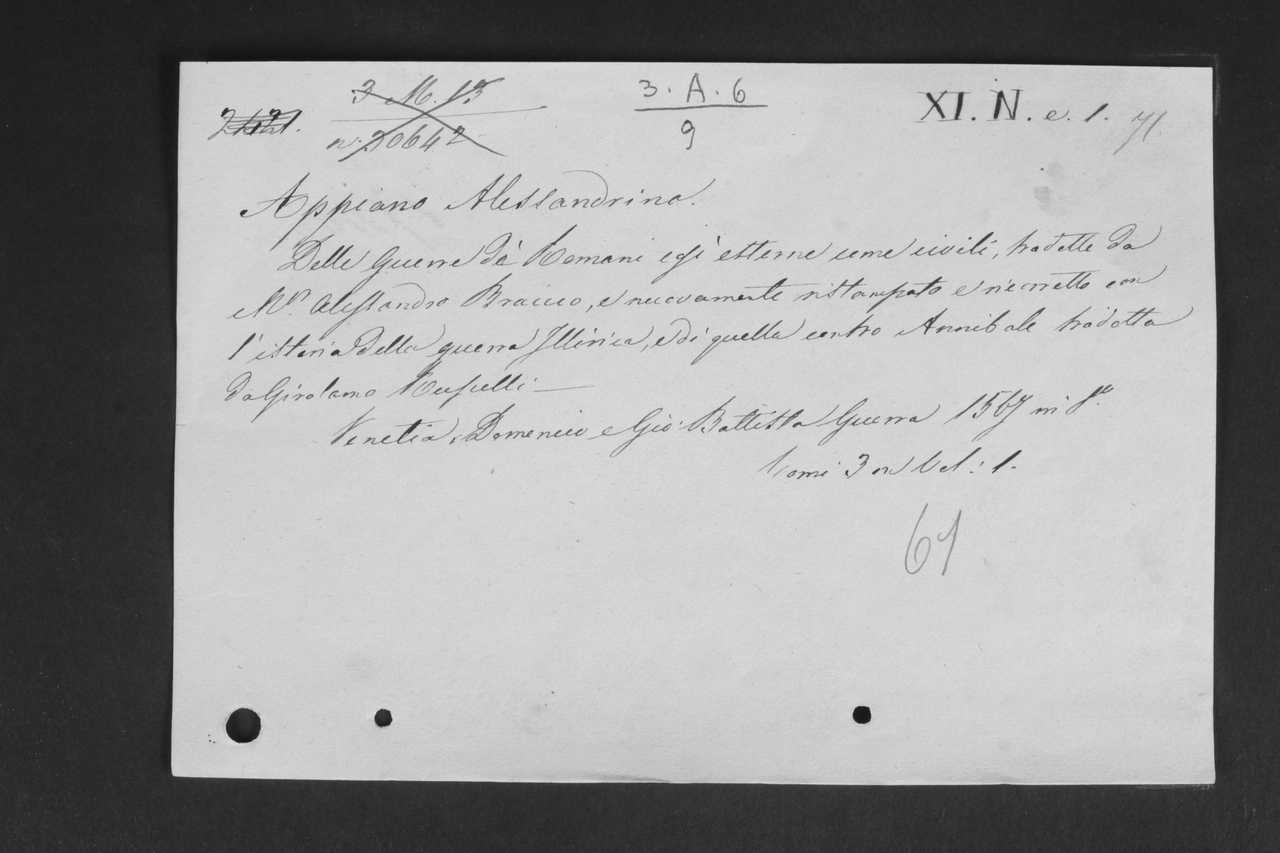 3. M. 13
n. 20642
3. A. 6
9
XI. N. e. 1. 71.
Appiano Alessandrino.
Delle Guerre dè Romani così esterne come civili, tradotte da
Mr. Alessandro Braccio, e nuovamente ristampato e ricorretto con
l'istoria della guerra Illirica, e di quella contro Annibale tradotta
da Girolamo Ruscelli —
Venetia, Domenico e Gio: Battista Guerra 1567 in 8º.
Tomi 3 in Vol: 1.
61